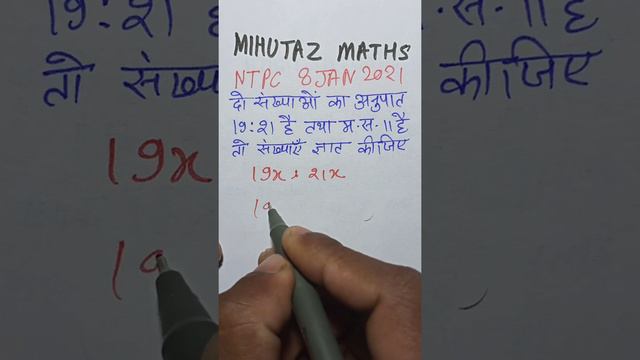 MIHUTAZ MATHS
NTPC 8 JAN 2021
दो संख्याओं का अनुपात
19:21 है तथा म.स. 11 है
तो संख्याएँ ज्ञात कीजिए
19x, 21x
19